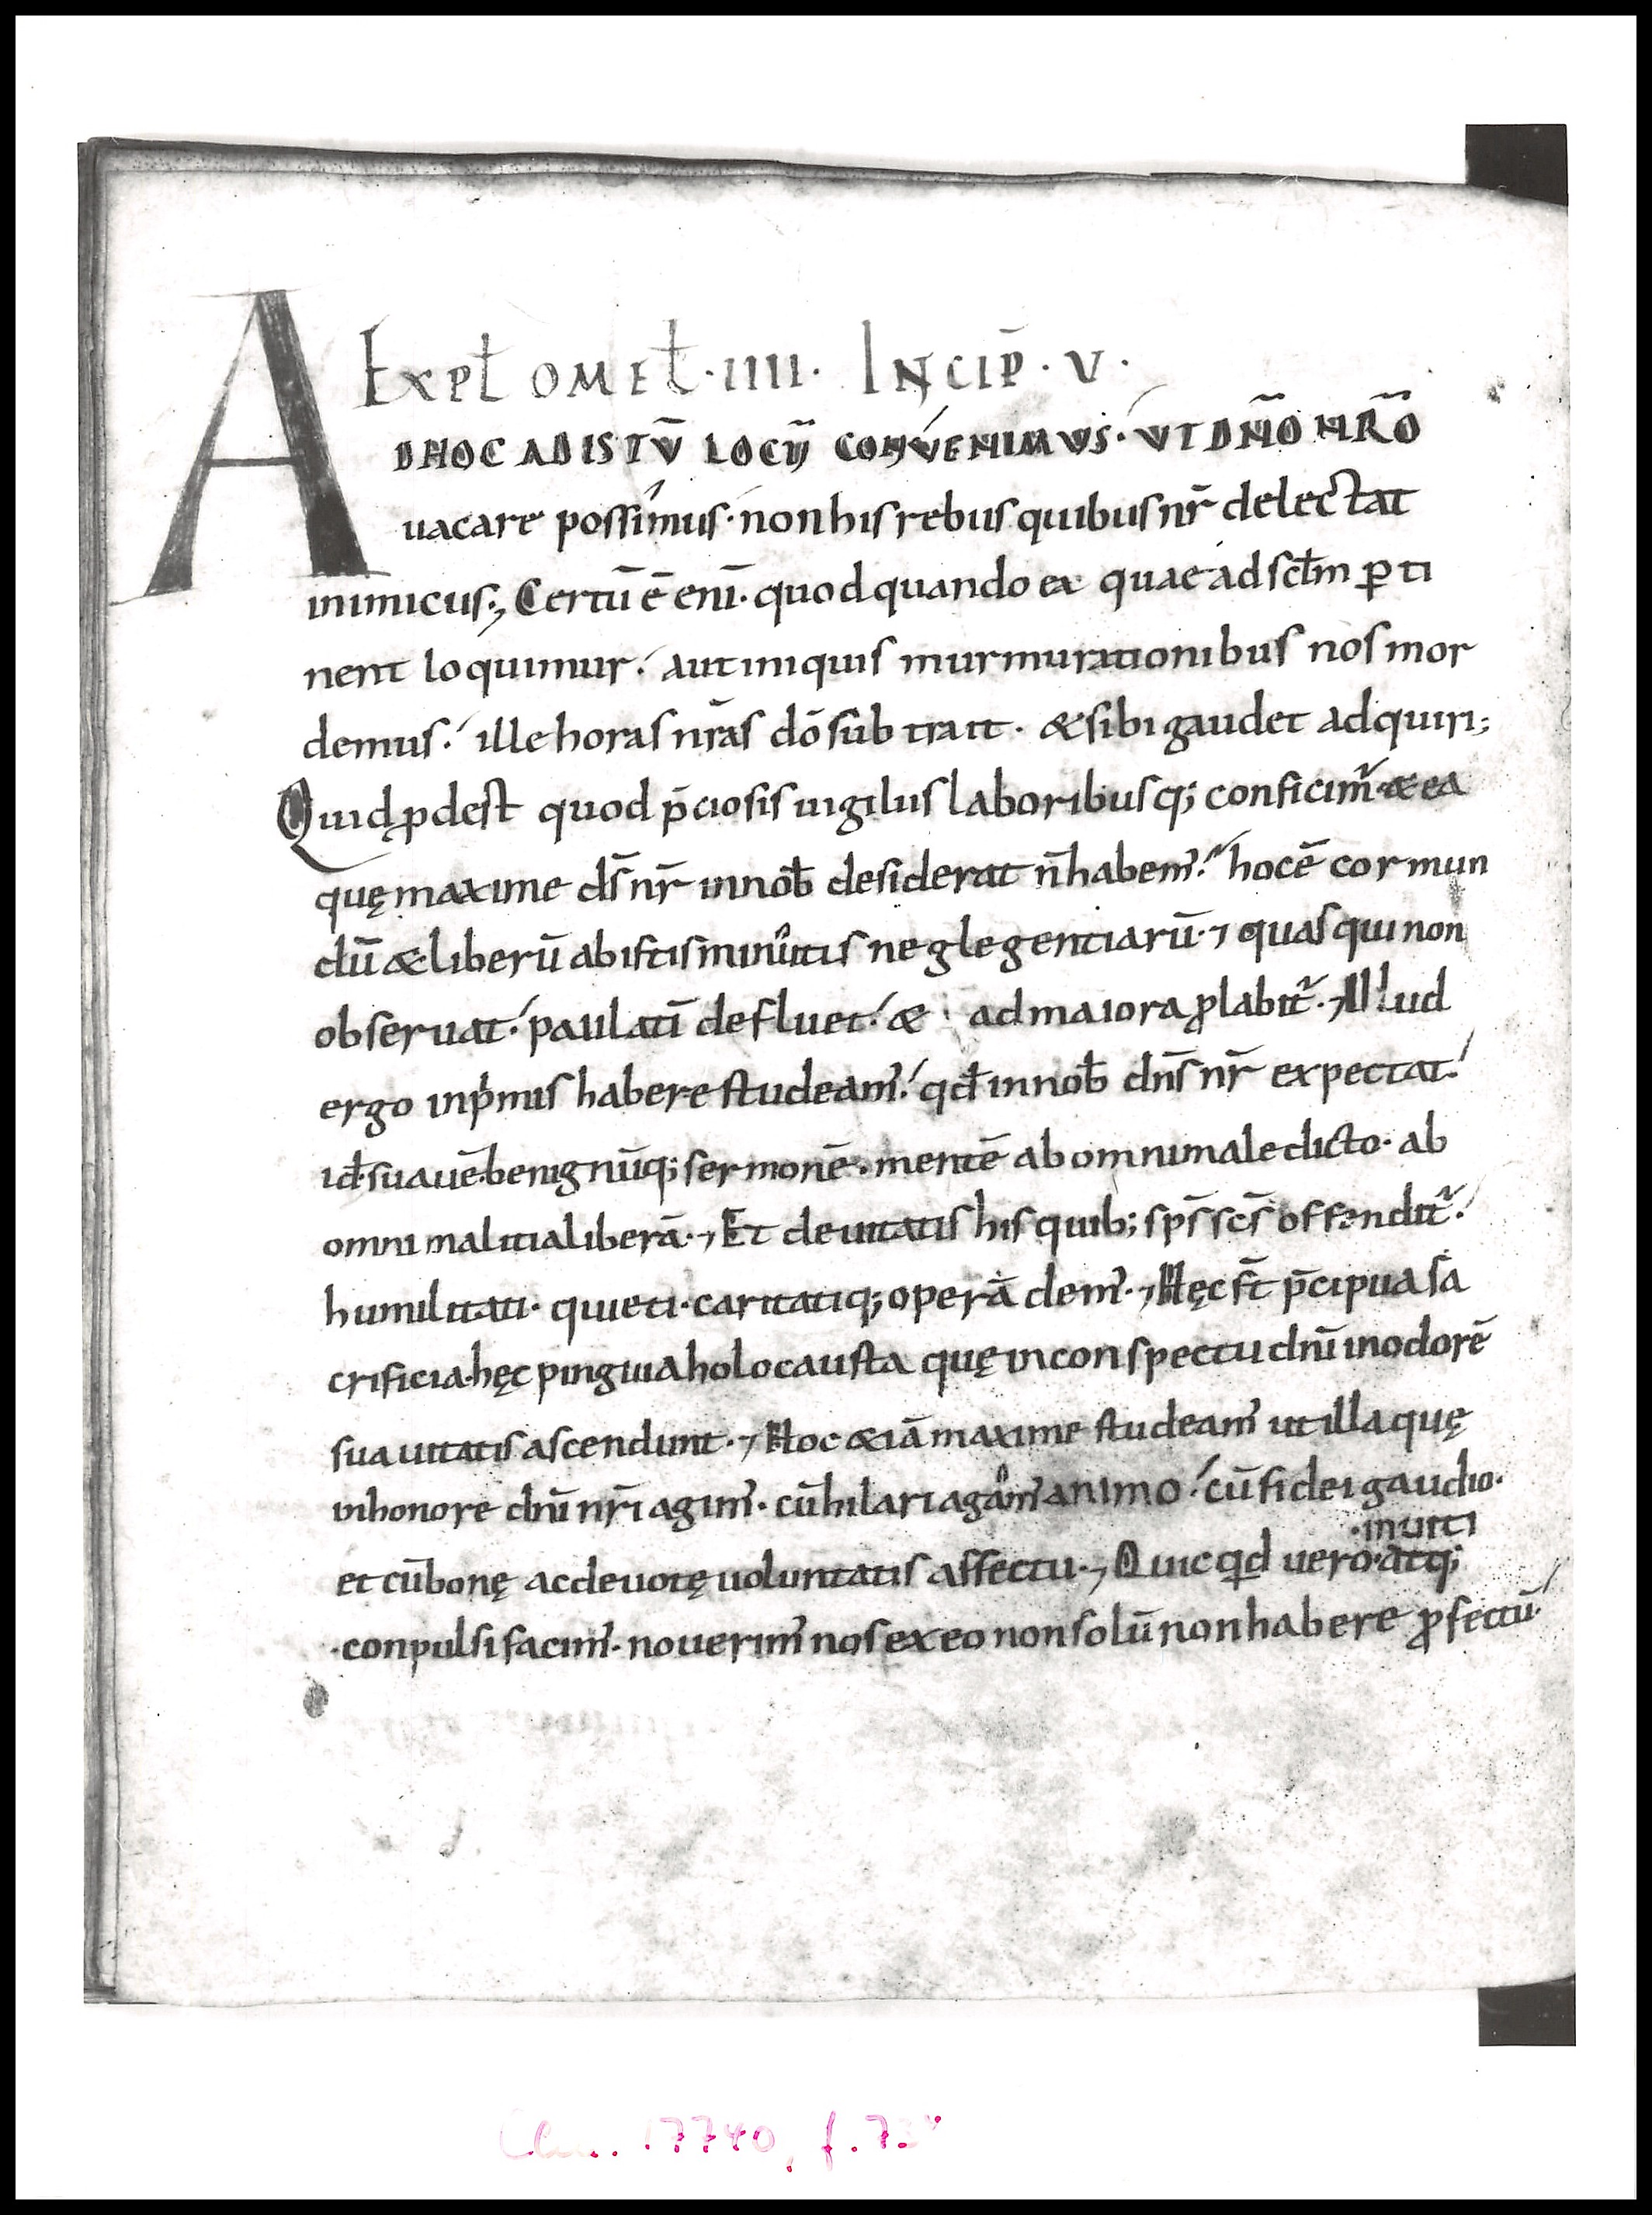 Expł omeł · IIII · Incip̄ · V ·
ADHOC AD ISTŪ LOCŪ CONVENIMUS · UT DÑO NR̄O
uacare possimus · non his rebus quibus nr̄ delectat
inimicus ;, Certū ē enī · quod quando ex quae ad sc̄lm ꝑti
nent loquimur · aut iniquis murmurationibus nos mor
demus · ille horas nr̄as dō sub trait · & sibi gaudet adquiri ;
Quid ꝓdest quod p̄ciosis uigiliis laboribusq; conficim̄ · & ea
quę maxime dī nr̄ in nob̄ desiderat n̄ habem᾽ · hoc ē cor mun
dū & liberū ab istis minutis neglegentiarū · , quas qui non
obseruat · paulatī defluet · & ad maiora ꝓlabit᷑ · , Illud
ergo inpͥmis habere studeam᾽ · qđ in nob̄ dn̄s nr̄ expectat ·
id · suauē · benignūq; sermonē · mentē ab omni maledicto · ab
omni malitia liberā · , Et deuitatis his quib; sp̄s sc̄s offendit᷑ ·
humilitati · quieti · caritatiq; operā dem᾽ · , Hęc st̄ p̄cipua sa
crificia · hęc pinguia holocausta quę in conspectu dn̄i in odorē
suauitatis ascendunt · , Hoc &iā maxime studeam᾽ ut illa quę
in honore dn̄i nr̄i agim᾽ · cū hilari agam᾽ animo · cū fidei gaudio ·
· inuiti
et cū bonę ac deuotę uoluntatis affectu · , Quicqđ uero · atq;
· conpulsi facim᾽ · nouerim᾽ nos ex eo non solū non habere ꝓfectū ·
Clm. 17740, f. 73ᵛ